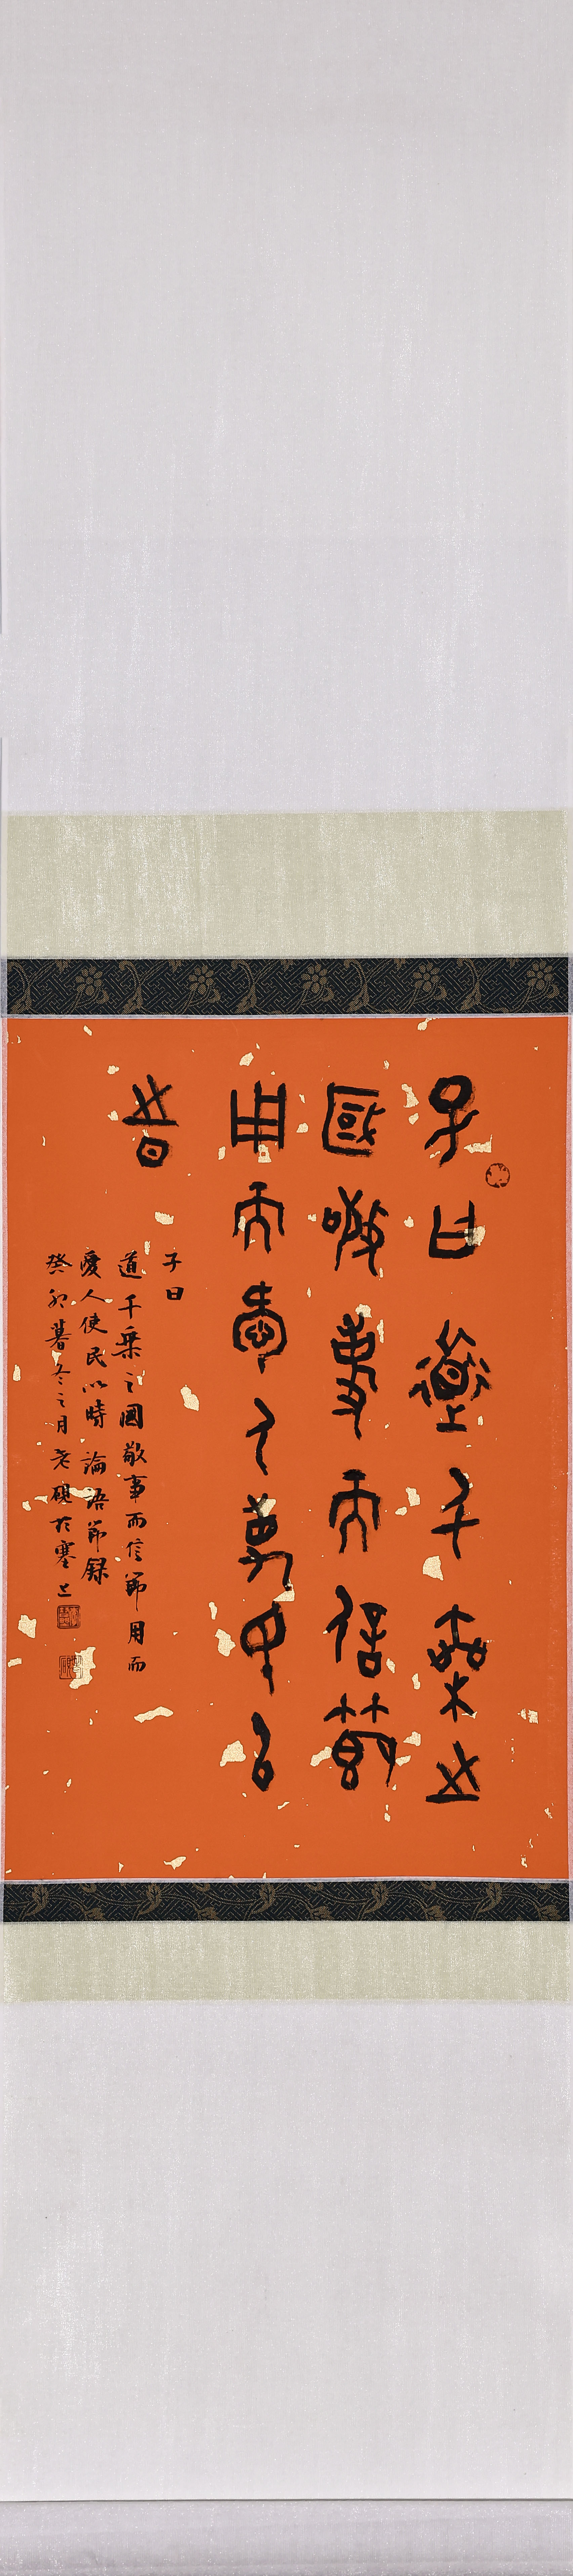 子曰道千乘之
國敬事而信節
用而愛人使民以
時
子曰
道千乘之國敬事而信節用而
愛人使民以時論語節録
癸卯暮冬之月老硯於塞上